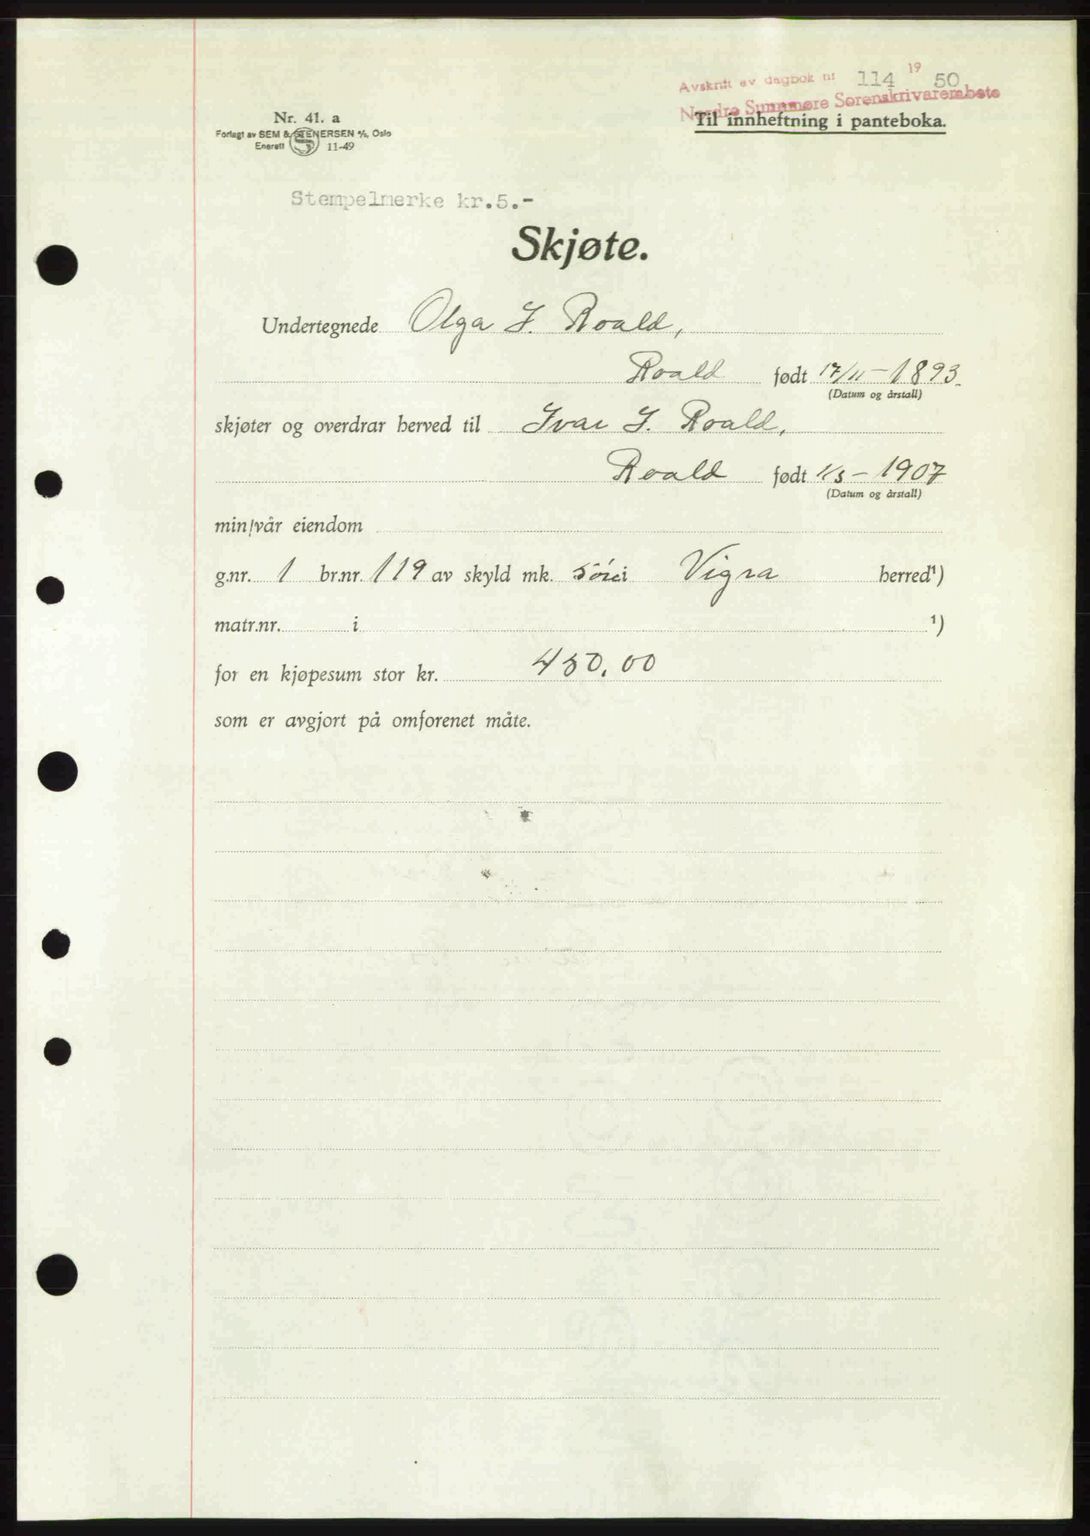 Avskrift av dagbok nr 114 1950
Nordre Sunnmøre Sorenskriverembete
Til innheftning i panteboka.
Nr. 41. a
Forlagt av SEM & STENERSEN A/S, Oslo
Enerett 11-49
Stempelmerke kr.5.-
Skjøte.
Undertegnede Olga J. Roald,
Roald født 17/11-1893.
(Datum og årstall)
skjøter og overdrar herved til Ivar J. Roald,
Roald født 1/5-1907
(Datum og årstall)
min/vår eiendom
g.nr. 1 br.nr. 119 av skyld mk. i Vigra herred¹)
matr.nr. i ¹)
for en kjøpesum stor kr. 450.00
som er avgjort på omforenet måte.